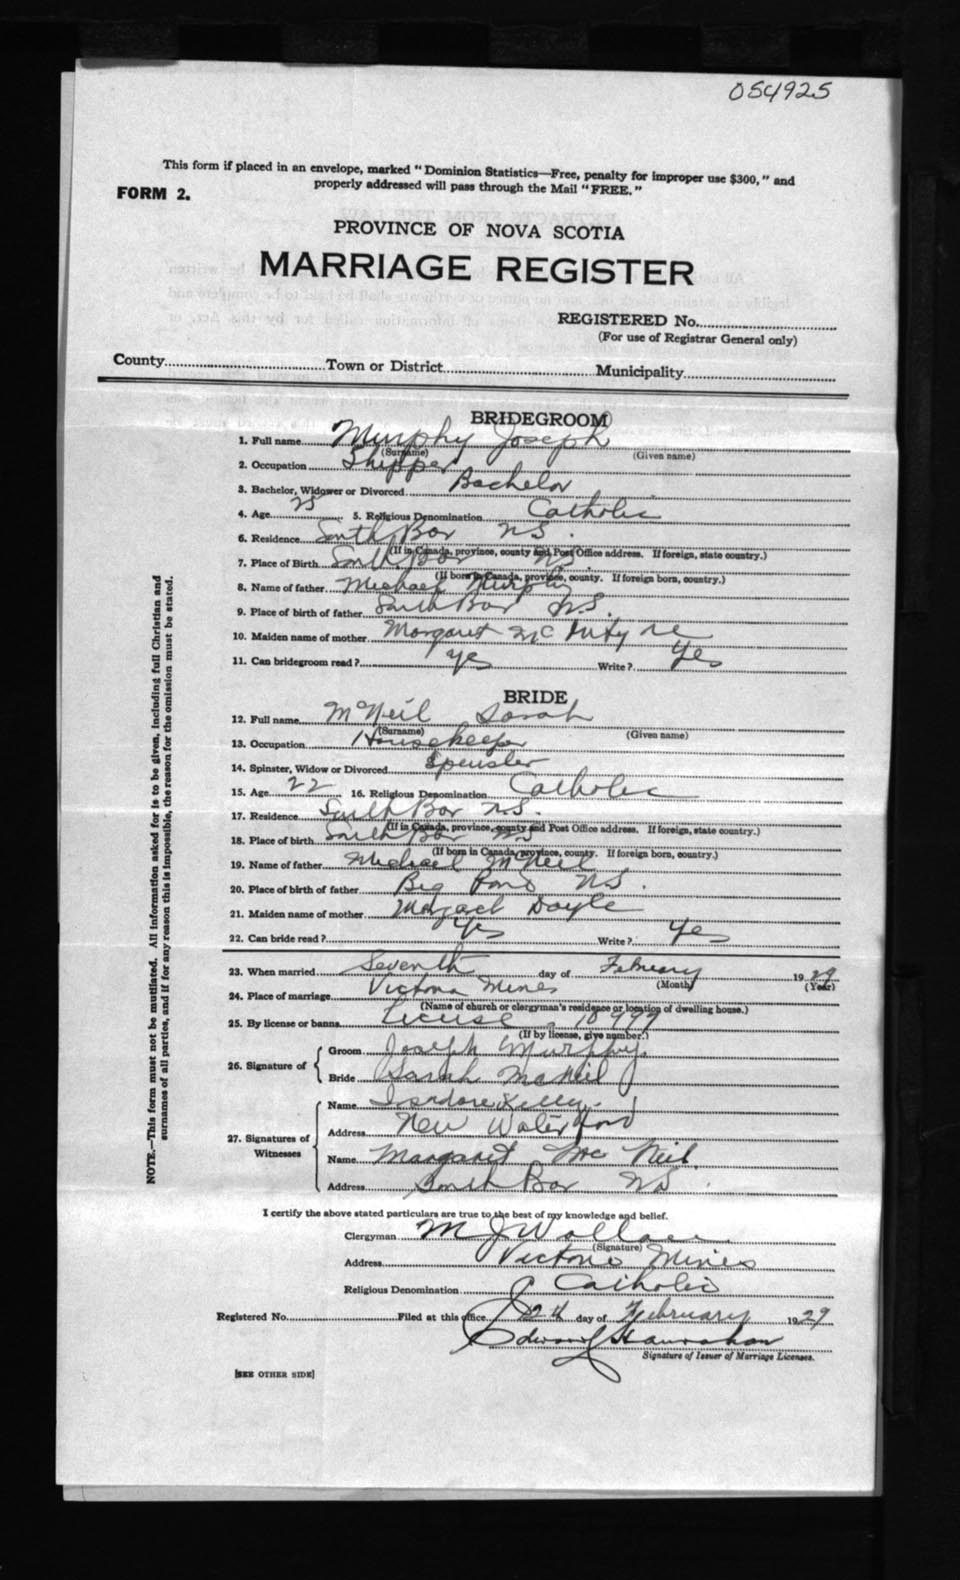 054925
This form if placed in an envelope, marked "Dominion Statistics—Free, penalty for improper use $300," and
properly addressed will pass through the Mail "FREE."
FORM 2.
PROVINCE OF NOVA SCOTIA
MARRIAGE REGISTER
REGISTERED No.
(For use of Registrar General only)
County Town or District Municipality
BRIDEGROOM
1. Full name Murphy Joseph
(Surname) (Given name)
2. Occupation Shipper
3. Bachelor, Widower or Divorced Bachelor
4. Age 25 5. Religious Denomination Catholic
6. Residence South Bar N.S.
(If in Canada, province, county and Post Office address. If foreign, state country.)
7. Place of Birth South Bar N.S.
(If born in Canada, province, county. If foreign born, country.)
8. Name of father Michael Murphy
9. Place of birth of father South Bar N.S.
10. Maiden name of mother Margaret Mc
11. Can bridegroom read? yes Write? Yes
BRIDE
12. Full name McNeil Sarah
(Surname) (Given name)
13. Occupation Housekeeper
14. Spinster, Widow or Divorced Spinster
15. Age 22 16. Religious Denomination Catholic
17. Residence South Bar N.S.
(If in Canada, province, county and Post Office address. If foreign, state country.)
18. Place of birth South Bar NS
(If born in Canada, province, county. If foreign born, country.)
19. Name of father Michael McNeil
20. Place of birth of father Big Pond N.S.
21. Maiden name of mother Margaret Doyle
22. Can bride read? Yes Write? Yes
23. When married Seventh day of February 1929
(Month) (Year)
24. Place of marriage Victoria Mines
(Name of church or clergyman's residence or location of dwelling house.)
25. By license or banns License - 10999
(If by license, give number.)
26. Signature of
Groom Joseph Murphy.
Bride Sarah McNeil
27. Signatures of Witnesses
Name Isadore Kelly.
Address New Waterford
Name Margaret Mc Neil.
Address South Bar NS.
I certify the above stated particulars are true to the best of my knowledge and belief.
Clergyman M J Wallace
(Signature)
Address Victoria Mines
Religious Denomination Catholic
Registered No. Filed at this office 12th day of February 1929
Edward
Signature of Issuer of Marriage Licenses.
[SEE OTHER SIDE]
NOTE.—This form must not be mutilated. All information asked for is to be given, including full Christian and
surnames of all parties, and if for any reason this is impossible, the reason for the omission must be stated.